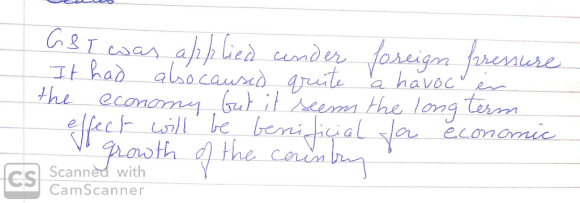 GST was applied under foreign pressure
It had also caused quite a havoc in
the economy but it seem the long term
effect will be benificial for economic
growth of the country
CS Scanned with
CamScanner